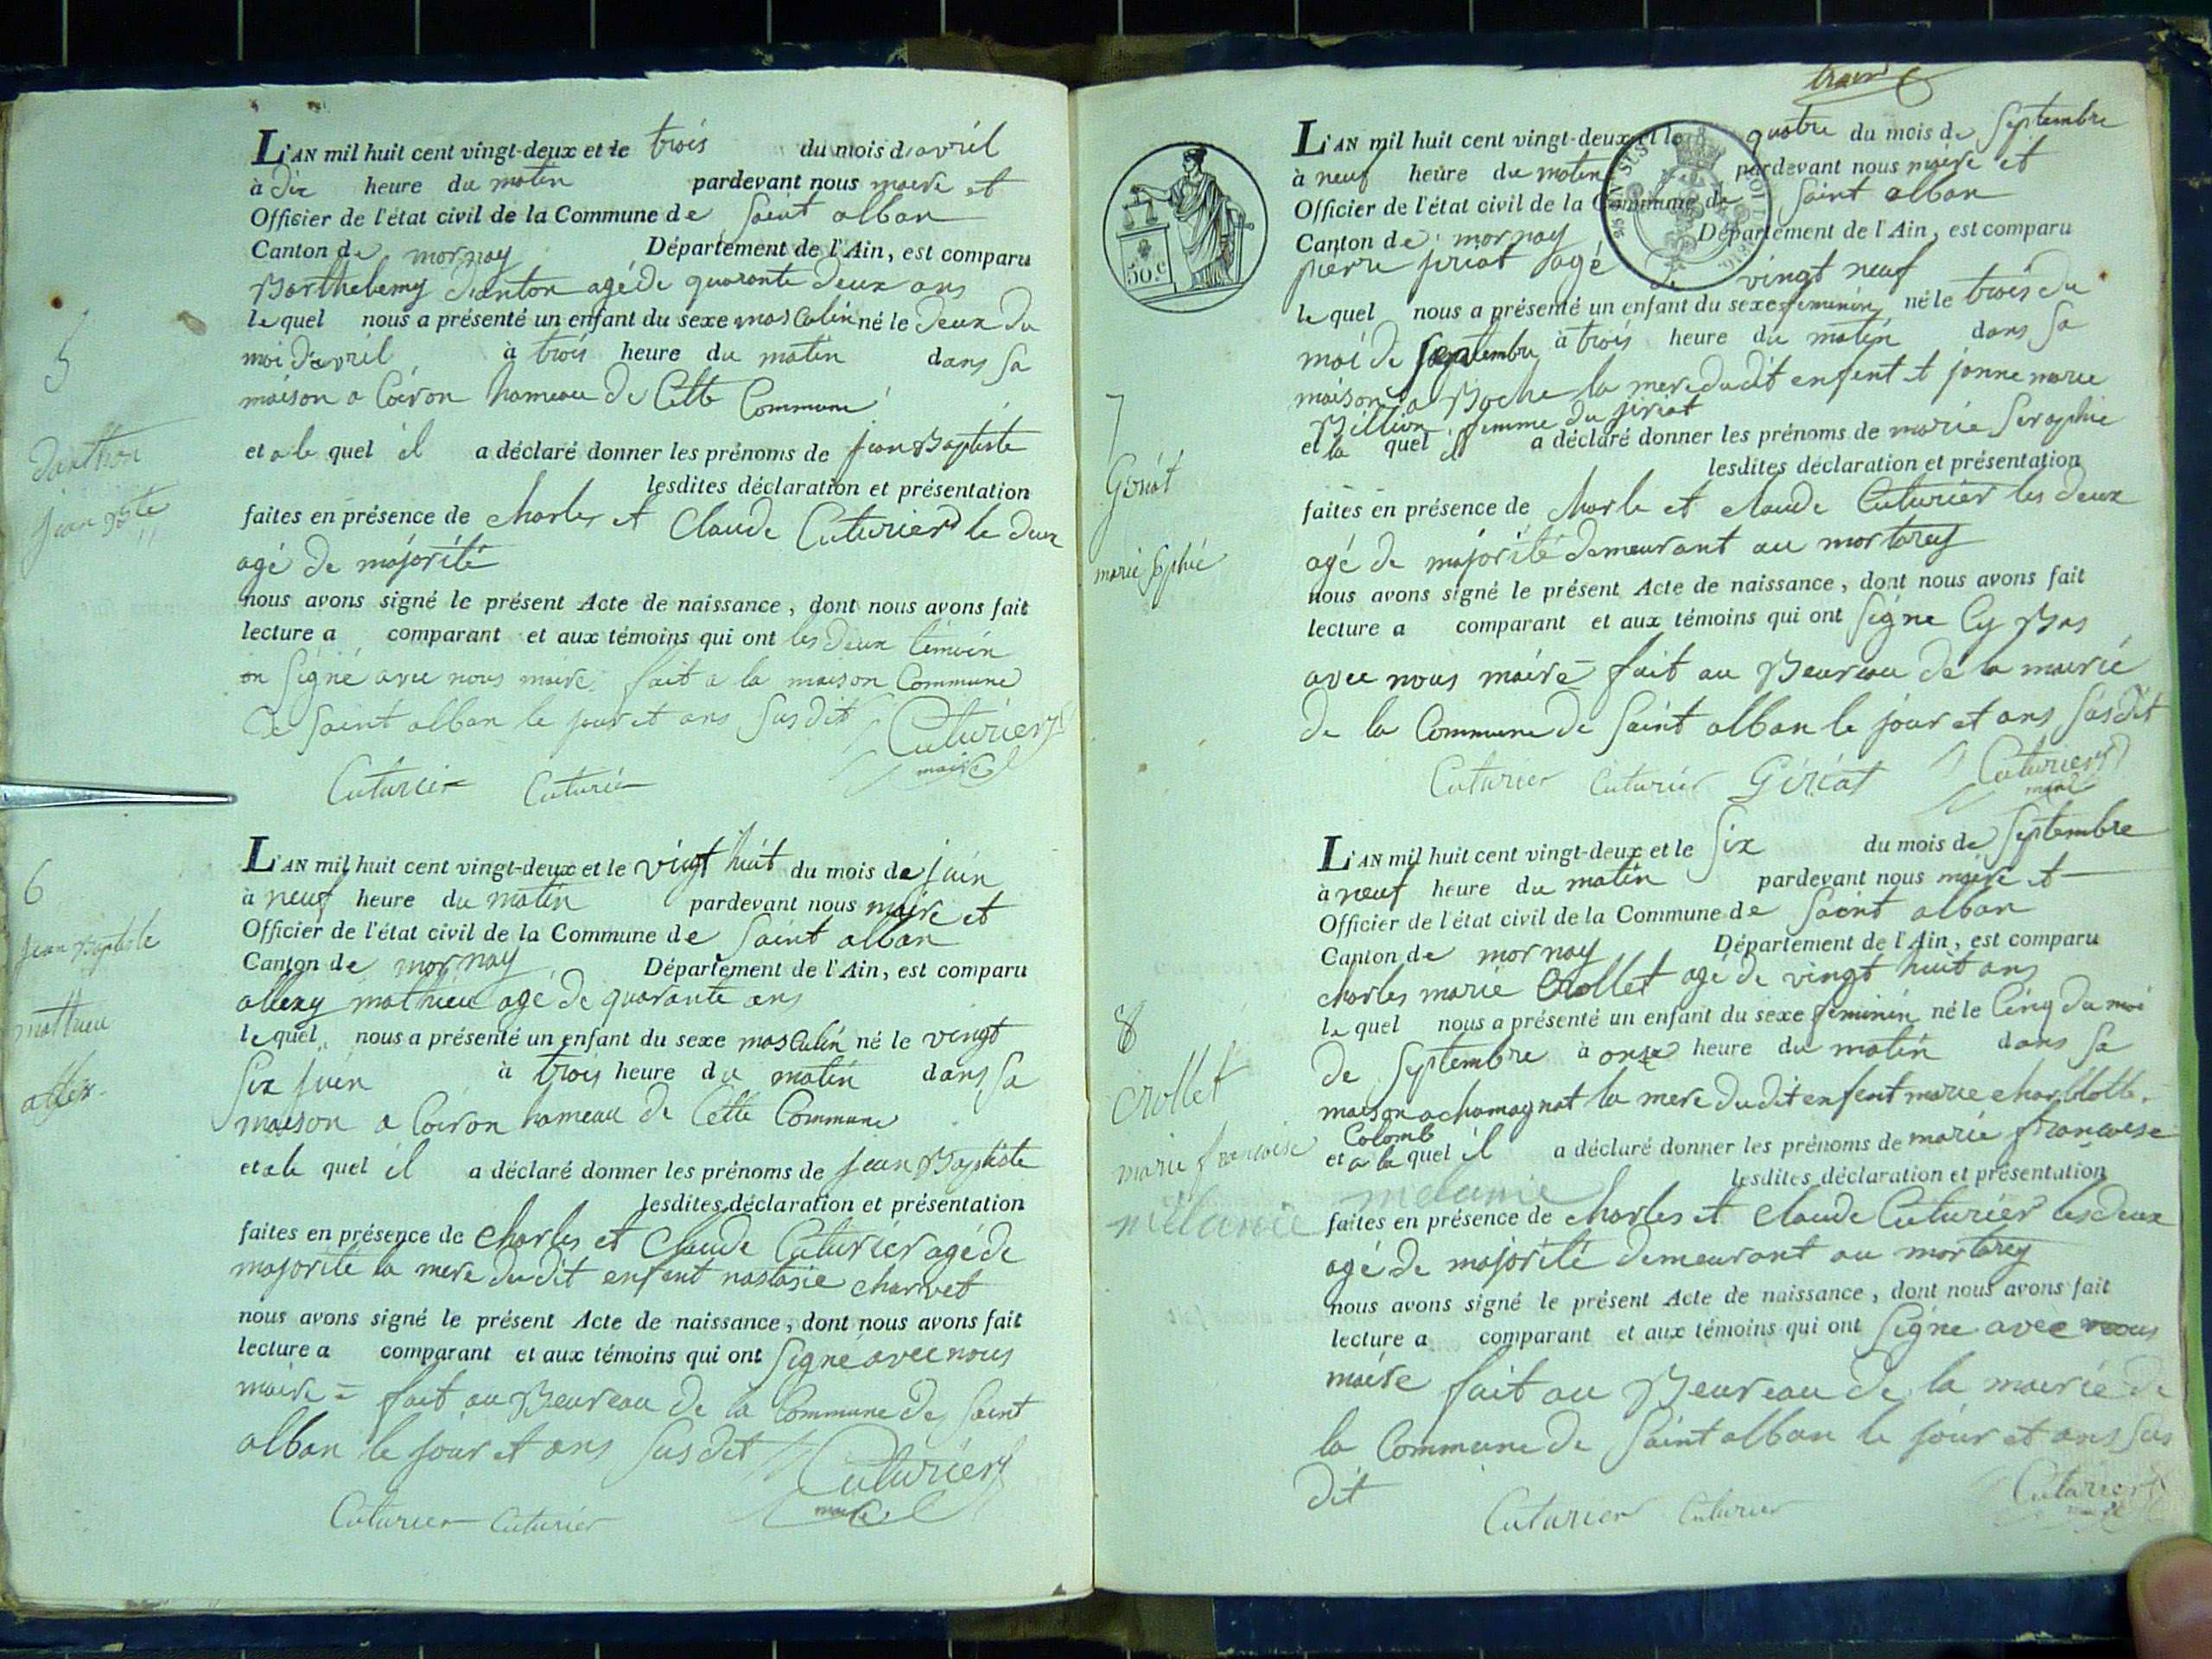 5
danthon
jean Bte
L'AN mil huit cent vingt-deux et le trois du mois d'avril
à dix heure du matin pardevant nous maire et
Officier de l'état civil de la Commune de Saint alban
Canton de mornay Département de l'Ain, est comparu
Barthelemy Danton agé de quarante deux ans
le quel nous a présenté un enfant du sexe masCulin né le deux du
moi d'avril à trois heure du matin dans sa
maison a Coiron hameau de Cette Commune
et a le quel il a déclaré donner les prénoms de jean Baptiste
lesdites déclaration et présentation
faites en présence de charles et Claude Cuturier le deux
agé de majorité
nous avons signé le présent Acte de naissance, dont nous avons fait
lecture a comparant et aux témoins qui ont les deux témoin
on Signé avec nous maire. fait a la maison Commune
de Saint alban le jour et ans Susdit Cuturier
maire
Cuturier Cuturier
6
jean Baptiste
mathieu
L'AN mil huit cent vingt-deux et le vingt huit du mois de juin
à neuf heure du matin pardevant nous maire et
Officier de l'état civil de la Commune de Saint alban
Canton de mornay Département de l'Ain, est comparu
allexy mathieu agé de quarante ans
le quel nous a présenté un enfant du sexe masCulin né le vingt
Six juin à trois heure du matin dans Sa
maison a Coiron hameau de Cette Commune
et a le quel il a déclaré donner les prénoms de jean Baptiste
lesdites déclaration et présentation
faites en présence de charles et Claude Cuturier agé de
majorité la mere dudit enfant nastasie charvet
nous avons signé le présent Acte de naissance, dont nous avons fait
lecture a comparant et aux témoins qui ont Signé avec nous
maire = fait au Beureau de la Commune de Saint
alban le jour et ans Sus dit Cuturier
maire
Cuturier Cuturier
50.c
7
Giriat
marie sophie
L'AN mil huit cent vingt-deux et le quatre du mois de Septembre
à neuf heure du matin pardevant nous maire et
Officier de l'état civil de la Commune de Saint alban
Canton de mornay Département de l'Ain, est comparu
pierre jiriat agé de vingt neuf
le quel nous a présenté un enfant du sexe feminin né le trois du
moi de Septembre à trois heure du matin dans Sa
maison a Boche la mere dudit enfent et janne marie
Billion femme du jiriat
et la quel il a déclaré donner les prénoms de marie Seraphie
lesdites déclaration et présentation
faites en présence de charle et claude Cuturier les deux
agé de majorité demeurant au mortarey
nous avons signé le présent Acte de naissance, dont nous avons fait
lecture a comparant et aux témoins qui ont Signe Cy Bas
avec nous maire = fait au Beureau de la mairie
de la Commune de Saint alban le jour et ans Susdit
Cuturier Cuturier Giriat Cuturier
maire
8
Crollet
marie francoise
mélanie
L'AN mil huit cent vingt-deux et le Six du mois de Septembre
à neuf heure du matin pardevant nous maire et
Officier de l'état civil de la Commune de Saint alban
Canton de mornay Département de l'Ain, est comparu
charles marie Crollet agé de vingt huit ans
le quel nous a présenté un enfant du sexe feminin né le Cinq du moi
de Septembre à onze heure du matin dans Sa
maison a chamagnat la mere dudit enfent marie charlotte
Colomb
et a la quel il a déclaré donner les prénoms de marie francoise
melanie lesdites déclaration et présentation
faites en présence de charles et claude Cuturier les deux
agé de majorité demeurant au mortarey
nous avons signé le présent Acte de naissance, dont nous avons fait
lecture a comparant et aux témoins qui ont Signe avec nous
maire fait au Beureau de la mairie de
la Commune de Saint alban le jour et ans Sus
dit
Cuturier Cuturier Cuturier
maire